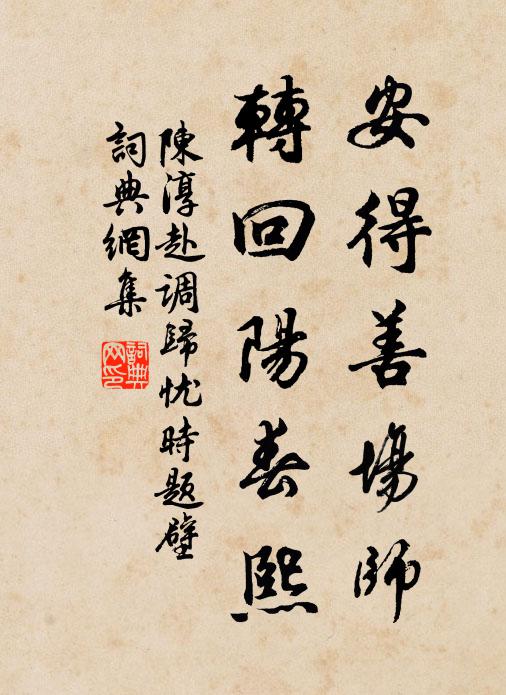 安得善場師
轉回陽春熙
陳淳赴調歸忧時題壁
詞典網集
詞典
网印